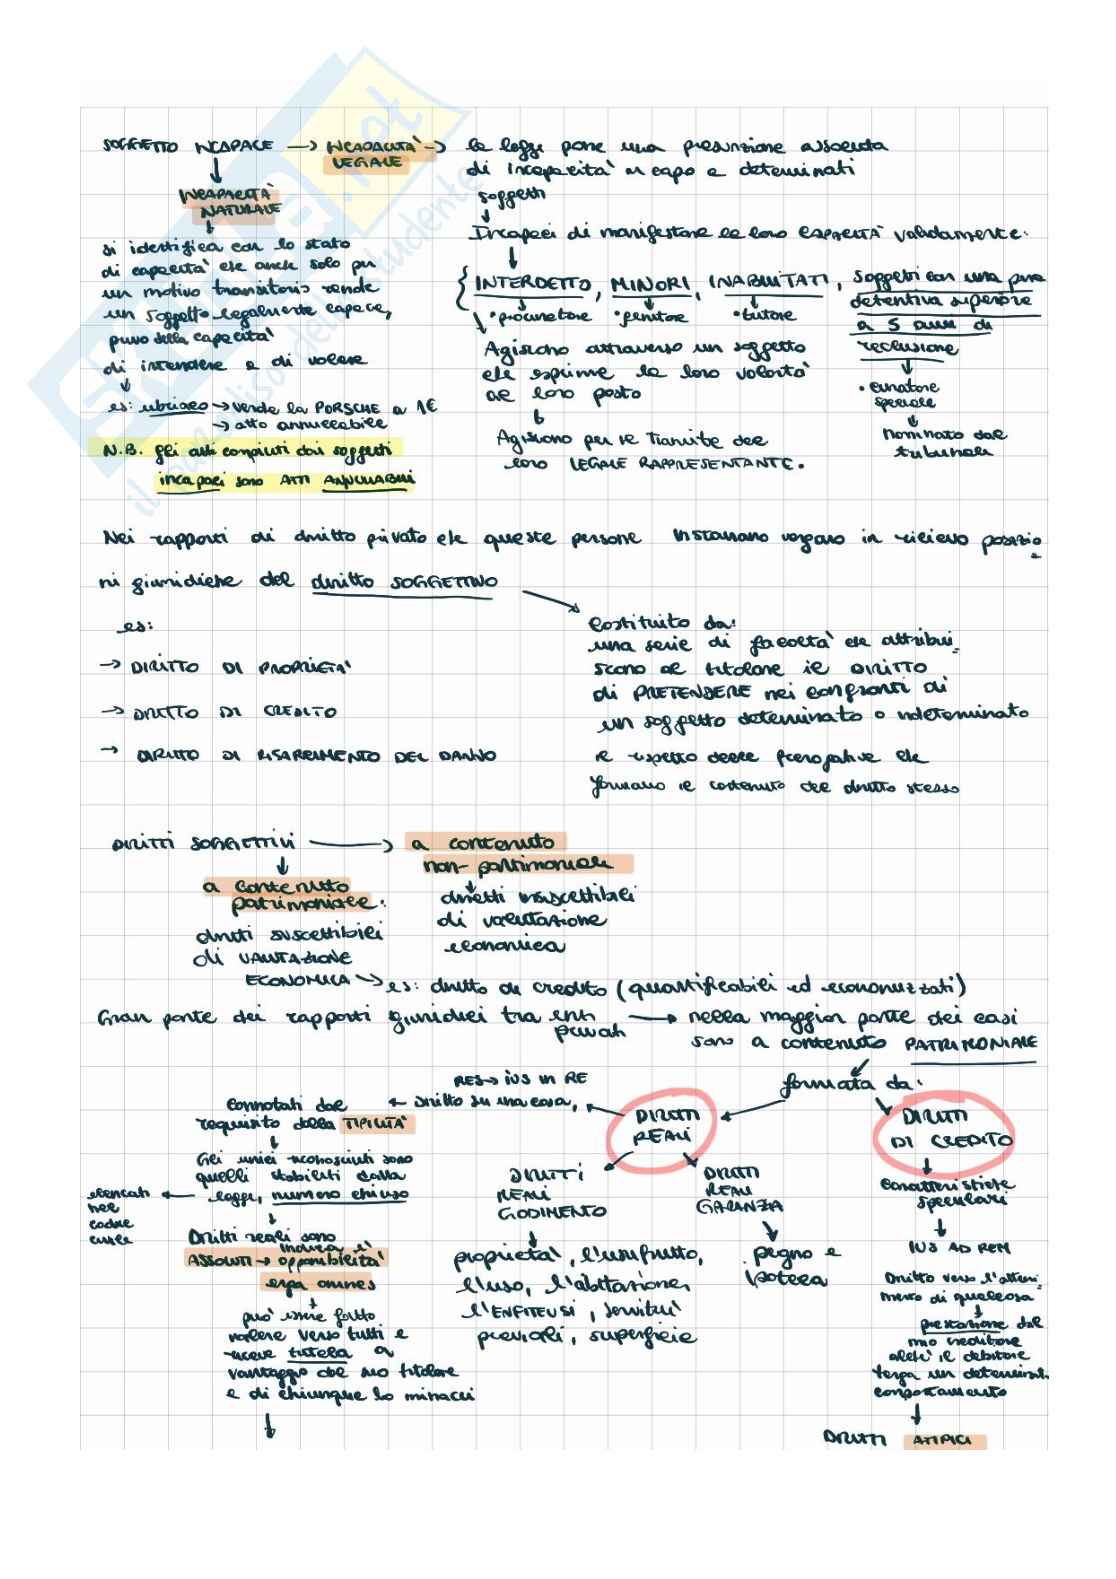 SOGGETTO INCAPACE → INCAPACITÀ LEGALE → la legge pone una presunzione assoluta
di incapacità in capo a determinati
soggetti
Incapaci di manifestare la loro CAPACITÀ validamente:
{ INTERDETTO, MINORI, INABILITATI, soggetti con una pena
detentiva superiore
a 5 anni di
reclusione
• procuratore • genitore • tutore
Agiscono attraverso un soggetto
che esprime la loro volontà
al loro posto
Agiscono per il tramite del
loro LEGALE RAPPRESENTANTE.
• curatore
speciale
nominato dal
tribunale
INCAPACITÀ
NATURALE
si identifica con lo stato
di capacità che anche solo per
un motivo transitorio rende
un soggetto legalmente capace,
privo della capacità
di intendere e di volere
es: ubriaco → vende la PORSCHE a 1€
→ atto annullabile
N.B. gli atti compiuti dai soggetti
incapaci sono ATTI ANNULLABILI
Nei rapporti di diritto privato che queste persone instaurano vengono in rilievo posizio
ni giuridiche del diritto SOGGETTIVO
es:
→ DIRITTO DI PROPRIETA'
→ DIRITTO DI CREDITO
→ DIRITTO DI RISARCIMENTO DEL DANNO
Costituito da:
una serie di facoltà che attribui_
scono al titolare il DIRITTO
di PRETENDERE nei confronti di
un soggetto determinato o indeterminato
il rispetto delle prerogative che
formano il contenuto del diritto stesso
DIRITTI SOGGETTIVI → a contenuto
non-patrimoniale
diritti insuscettibili
di valutazione
economica
a contenuto
patrimoniale:
diritti suscettibili
di VALUTAZIONE
ECONOMICA → es: diritto di credito (quantificabili ed economizzati)
Gran parte dei rapporti giuridici tra enti
privati → nella maggior parte dei casi
sono a contenuto PATRIMONIALE
formata da:
DIRITTI
REALI
DIRITTI
DI CREDITO
RES → IUS IN RE
diritto su una cosa,
Connotati dal
requisito della TIPICITÀ
Gli unici riconosciuti sono
quelli stabiliti dalla
legge, numero chiuso
elencati
nel
codice
civile
Diritti reali sono
indica l'
ASSOLUTI → opponibilità
erga omnes
può essere fatto
valere verso tutti e
riceve tutela a
vantaggio del suo titolare
e di chiunque lo minacci
DIRITTI
REALI
GODIMENTO
proprietà, l'usufrutto,
l'uso, l'abitazione,
l'ENFITEUSI, servitù
prediali, superficie
DIRITTI
REALI
GARANZIA
pegno e
ipoteca
caratteristiche
speculari
IUS AD REM
Diritto verso l'otteni_
mento di qualcosa
prestazione dal
suo creditore
affinché il debitore
tenga un determinat.
comportamento
DIRITTI ATIPICI
skuola.net
il paradiso dello studente